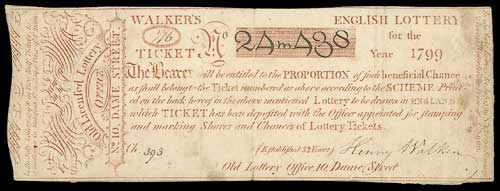 WALKER'S ENGLISH LOTTERY
1/16 for the
TICKET, No 24m438 Year 1799
The Bearer will be entitled to the PROPORTION of such beneficial Chance
as shall belong to the Ticket numbered as above according to the SCHEME Print-
ed on the back hereof in the above mentioned Lottery to be drawn in ENGLAND
which TICKET has been deposited with the Officer appointed for stamping
and marking Shares and Chances of Lottery Tickets.
Ch. 393 (Established 32 Years) Henry Walker
Old Lottery Office, 10, Dame Street
Old Licensed Lottery
OFFICE
No. 10, DAME STREET